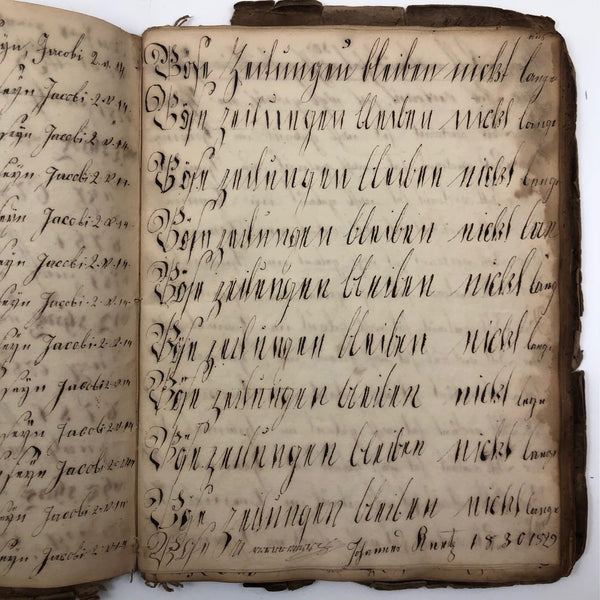 eyn, Jacobi 2. v. 14.
seyn Jacobi 2. v. 14.
seyn Jacobi 2. v. 14.
seyn Jacobi 2. v. 14.
seyn Jacobi 2. v. 14.
seyn Jacobi 2. v. 14.
seyn Jacobi. 2. v. 14.
seyn Jacobi 2. v. 14.
seyn Jacobi 2. v. 14.
seyn Jacobi 2. v. 14.
seyn Jacobi 2. v. 14.
seyn Jacobi 2. v. 14.
seyn Jacobi 2. v. 14.
Böse Zeitungen bleiben nicht lange
Böse zeitungen bleiben nicht lange
Böse zeitungen bleiben nicht lange
Böse zeitungen bleiben nicht lan
Böse zeitungen bleiben nicht lang
Böse zeitungen bleiben nicht lange
Böse zeitungen bleiben nicht
Böse zeitungen bleiben nicht lange
Böse zeitungen bleiben nicht lange
Böse Johannes 1830 1829